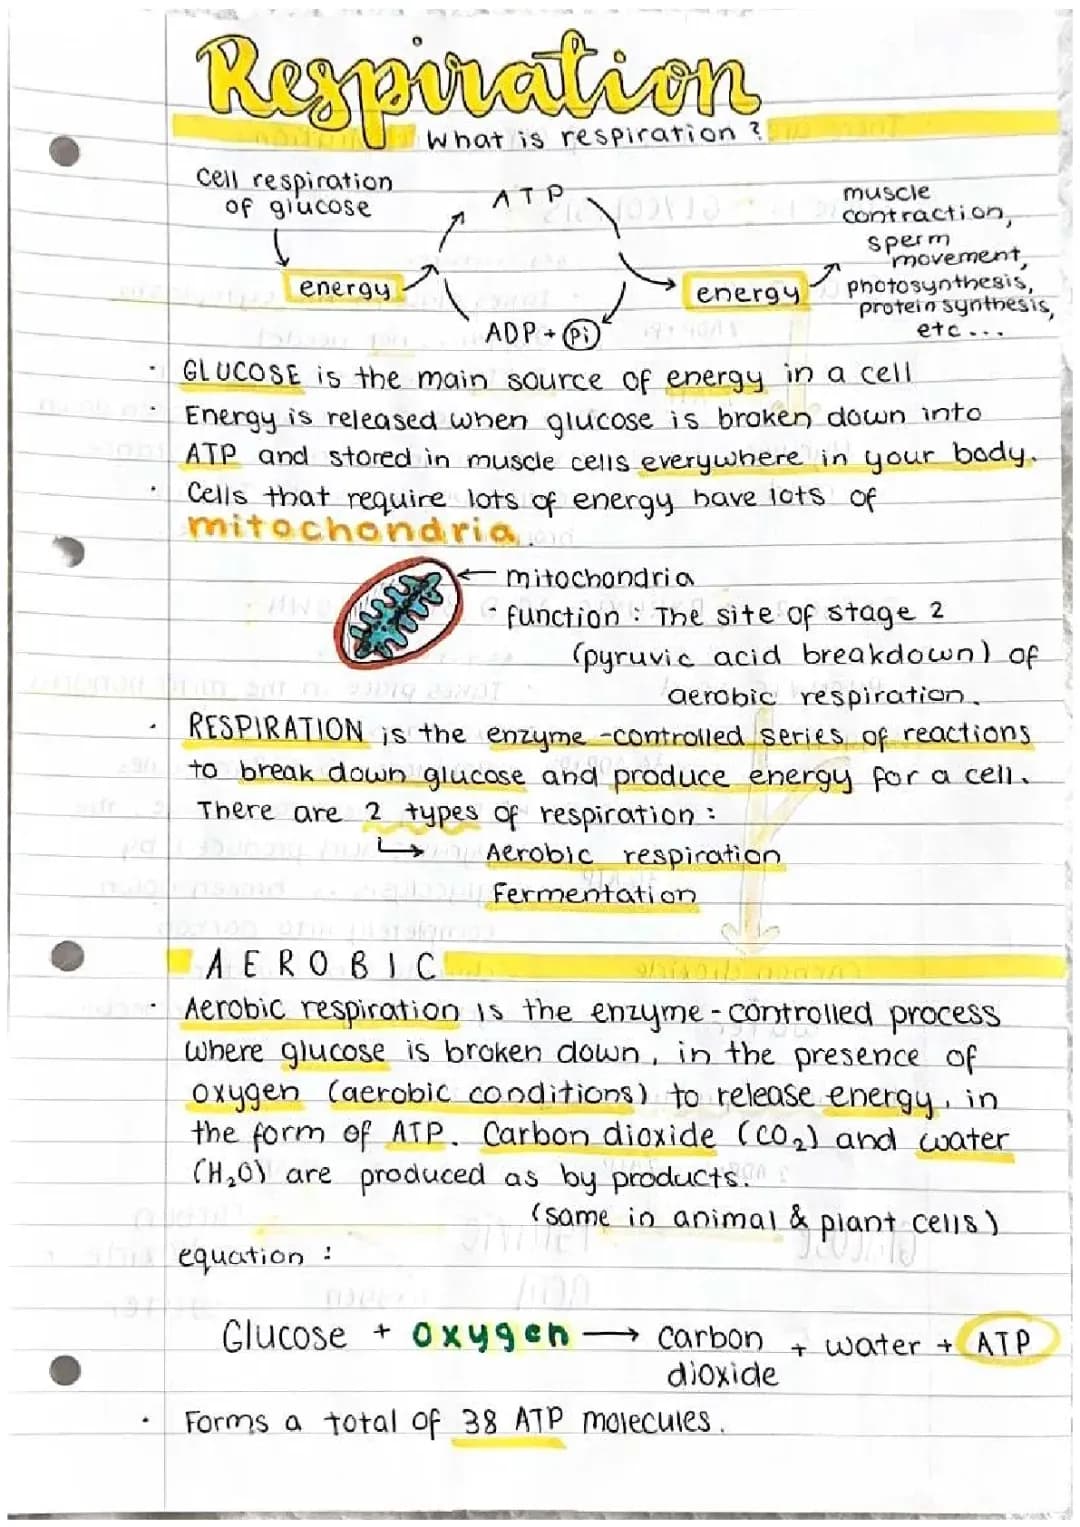 Respiration
What is respiration?
Cell respiration
of glucose
ATP
energy
ADP + Pi
energy
muscle
contraction,
sperm
movement,
photosynthesis,
protein synthesis,
etc...
· GLUCOSE is the main source of energy in a cell
· Energy is released when glucose is broken down into
ATP and stored in muscle cells everywhere in your body.
· Cells that require lots of energy have lots of
mitochondria.
mitochondria
- function : The site of stage 2
(pyruvic acid breakdown) of
aerobic respiration.
· RESPIRATION is the enzyme-controlled series of reactions
to break down glucose and produce energy for a cell.
There are 2 types of respiration :
Aerobic respiration
Fermentation
AEROBIC
· Aerobic respiration is the enzyme-controlled process
where glucose is broken down, in the presence of
oxygen (aerobic conditions) to release energy, in
the form of ATP. Carbon dioxide (CO₂) and water
(H₂O) are produced as by products.
(same in animal & plant cells)
equation :
Glucose + oxygen → carbon dioxide + water + ATP
· Forms a total of 38 ATP molecules.